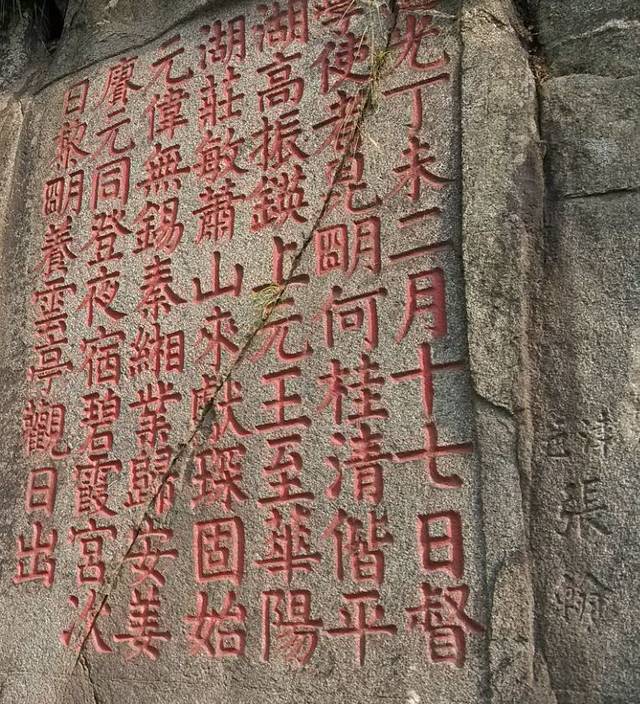 道光丁未二月十七日督
學使者昆朙何桂清偕平
湖高振鍈上元王至華陽
湖莊敏蕭山來獻琛固始
元偉無錫秦緗業歸安姜
賡元同登夜宿碧霞宮次
日黎朙養雲亭觀日出
張翰